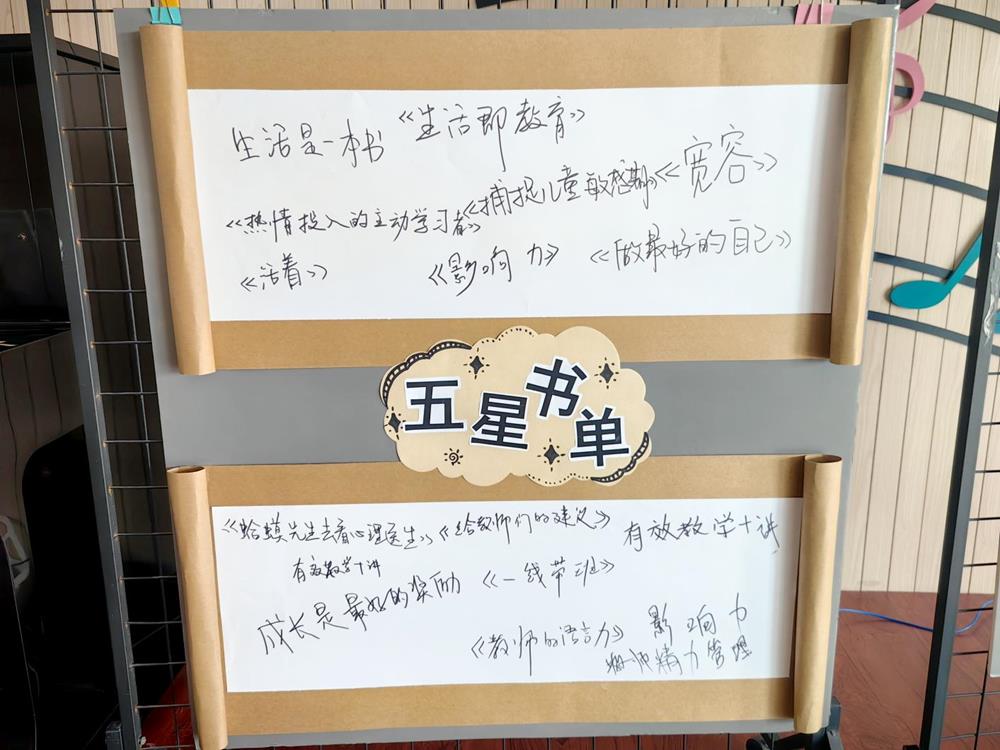 生活是一本书 《生活即教育》
《热情投入的主动学习者》《捕捉儿童敏感期》《宽容》
《活着》 《影响力》 《做最好的自己》
五星书单
《蛤蟆先生去看心理医生》《给教师们的建议》 有效教学十讲
有效教学十讲
成长是最好的奖励 《一线带班》
《教师的语言力》 影响力
精力管理